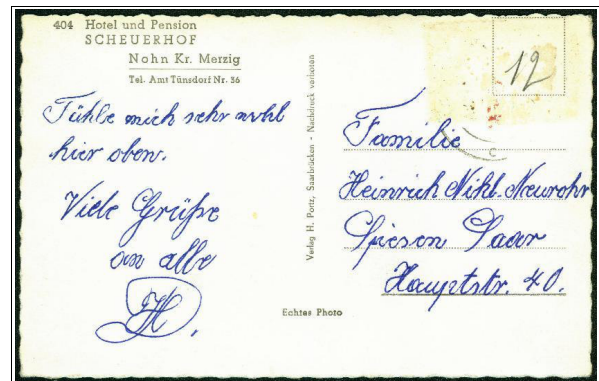 404 Hotel und Pension
SCHEUERHOF
Nohn Kr. Merzig
Tel. Amt Tünsdorf Nr. 36
Fühle mich sehr wohl
hier oben.
Viele Grüße
an alle
H.
Verlag H. Portz, Saarbrücken - Nachdruck verboten
Echtes Photo
12
Familie
Heinrich Nikl. Neurohr
Spiesen Saar
Hauptstr. 40.